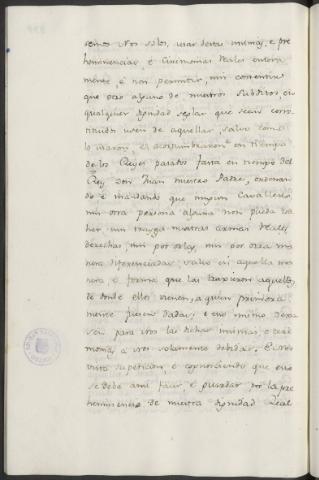 semos Nos solos, usar destas mismas, e pre
heminencias, è Cirimonias Reales entera
mente, è non permitir, nin consentir
que otro alguno de nuestros Subditos, en
qualquier dignidad seglar que sean cons
tituidos usen de aquellas, salvo como
lo usaron, el acostumbraron en tiempo
de los Reyes pasados fasta en tiempo del
Rey don Juan nuestro Padre, ordenan
do è mandando que ningun Cavallero
nin otra persona alguna non pueda tra
her nin trayga nuestras armas Reales
derechas, nin por orlas, nin por otra ma
nera diferenciadas, salvo en aquella ma
nera è forma que las truxieron aquellos
de donde ellos vienen, a quien primera
mente fueron dadas; e eso mismo dexa
sen para Nos las dichas mismas, e cere
monias, a Nos solamente debidas. E Nos
vista su peticion, e conosciendo que esto
se debe ansi facer, è guardar por la pre
heminencia de nuestra dignidad Real